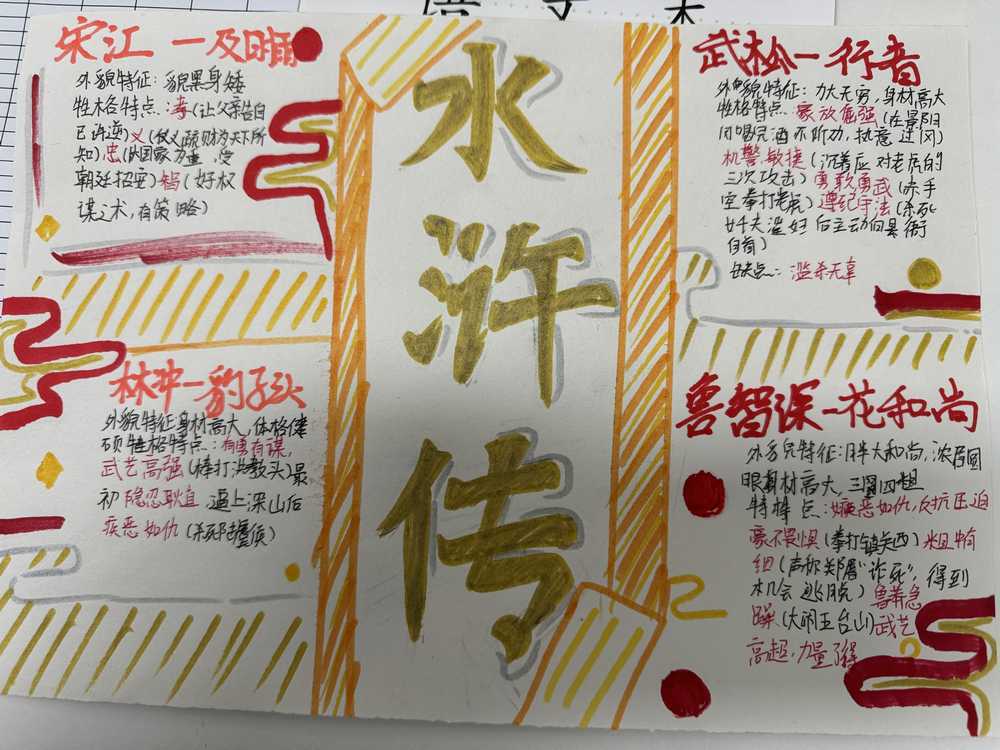 宋江一及时雨
外貌特征：貌黑身矮
性格特点：孝(让父亲告自
己忤逆)义(仗义疏财为天下所
知)忠(为国家力量，受
朝廷招安)智(好权
谋之术，有策略)
林冲一豹子头
外貌特征身材高大，体格健
硕 性格特点：有勇有谋，
武艺高强(棒打洪教头)最
初 隐忍耿直 逼上深山后
疾恶如仇(杀死陆虞侯)
水浒传
武松一行者
外貌特征：力大无穷，身材高大
性格特点 豪放倔强(在景阳
冈喝完酒不听劝，执意过冈)
机警敏捷(沉着应对老虎的
三次攻击)勇敢勇武(赤手
空拳打老虎)遵纪守法(杀死
奸夫淫妇后主动向县衙
自首)
缺点：滥杀无辜
鲁智深一花和尚
外貌特征：胖大和尚，浓眉圆
眼身材高大，三圆四粗
特点：嫉恶如仇，反抗压迫
豪不畏惧(拳打镇关西)粗中有
细(声称郑屠"诈死"，得到
机会逃脱)鲁莽急
躁(大闹五台山)武艺
高超，力量了得